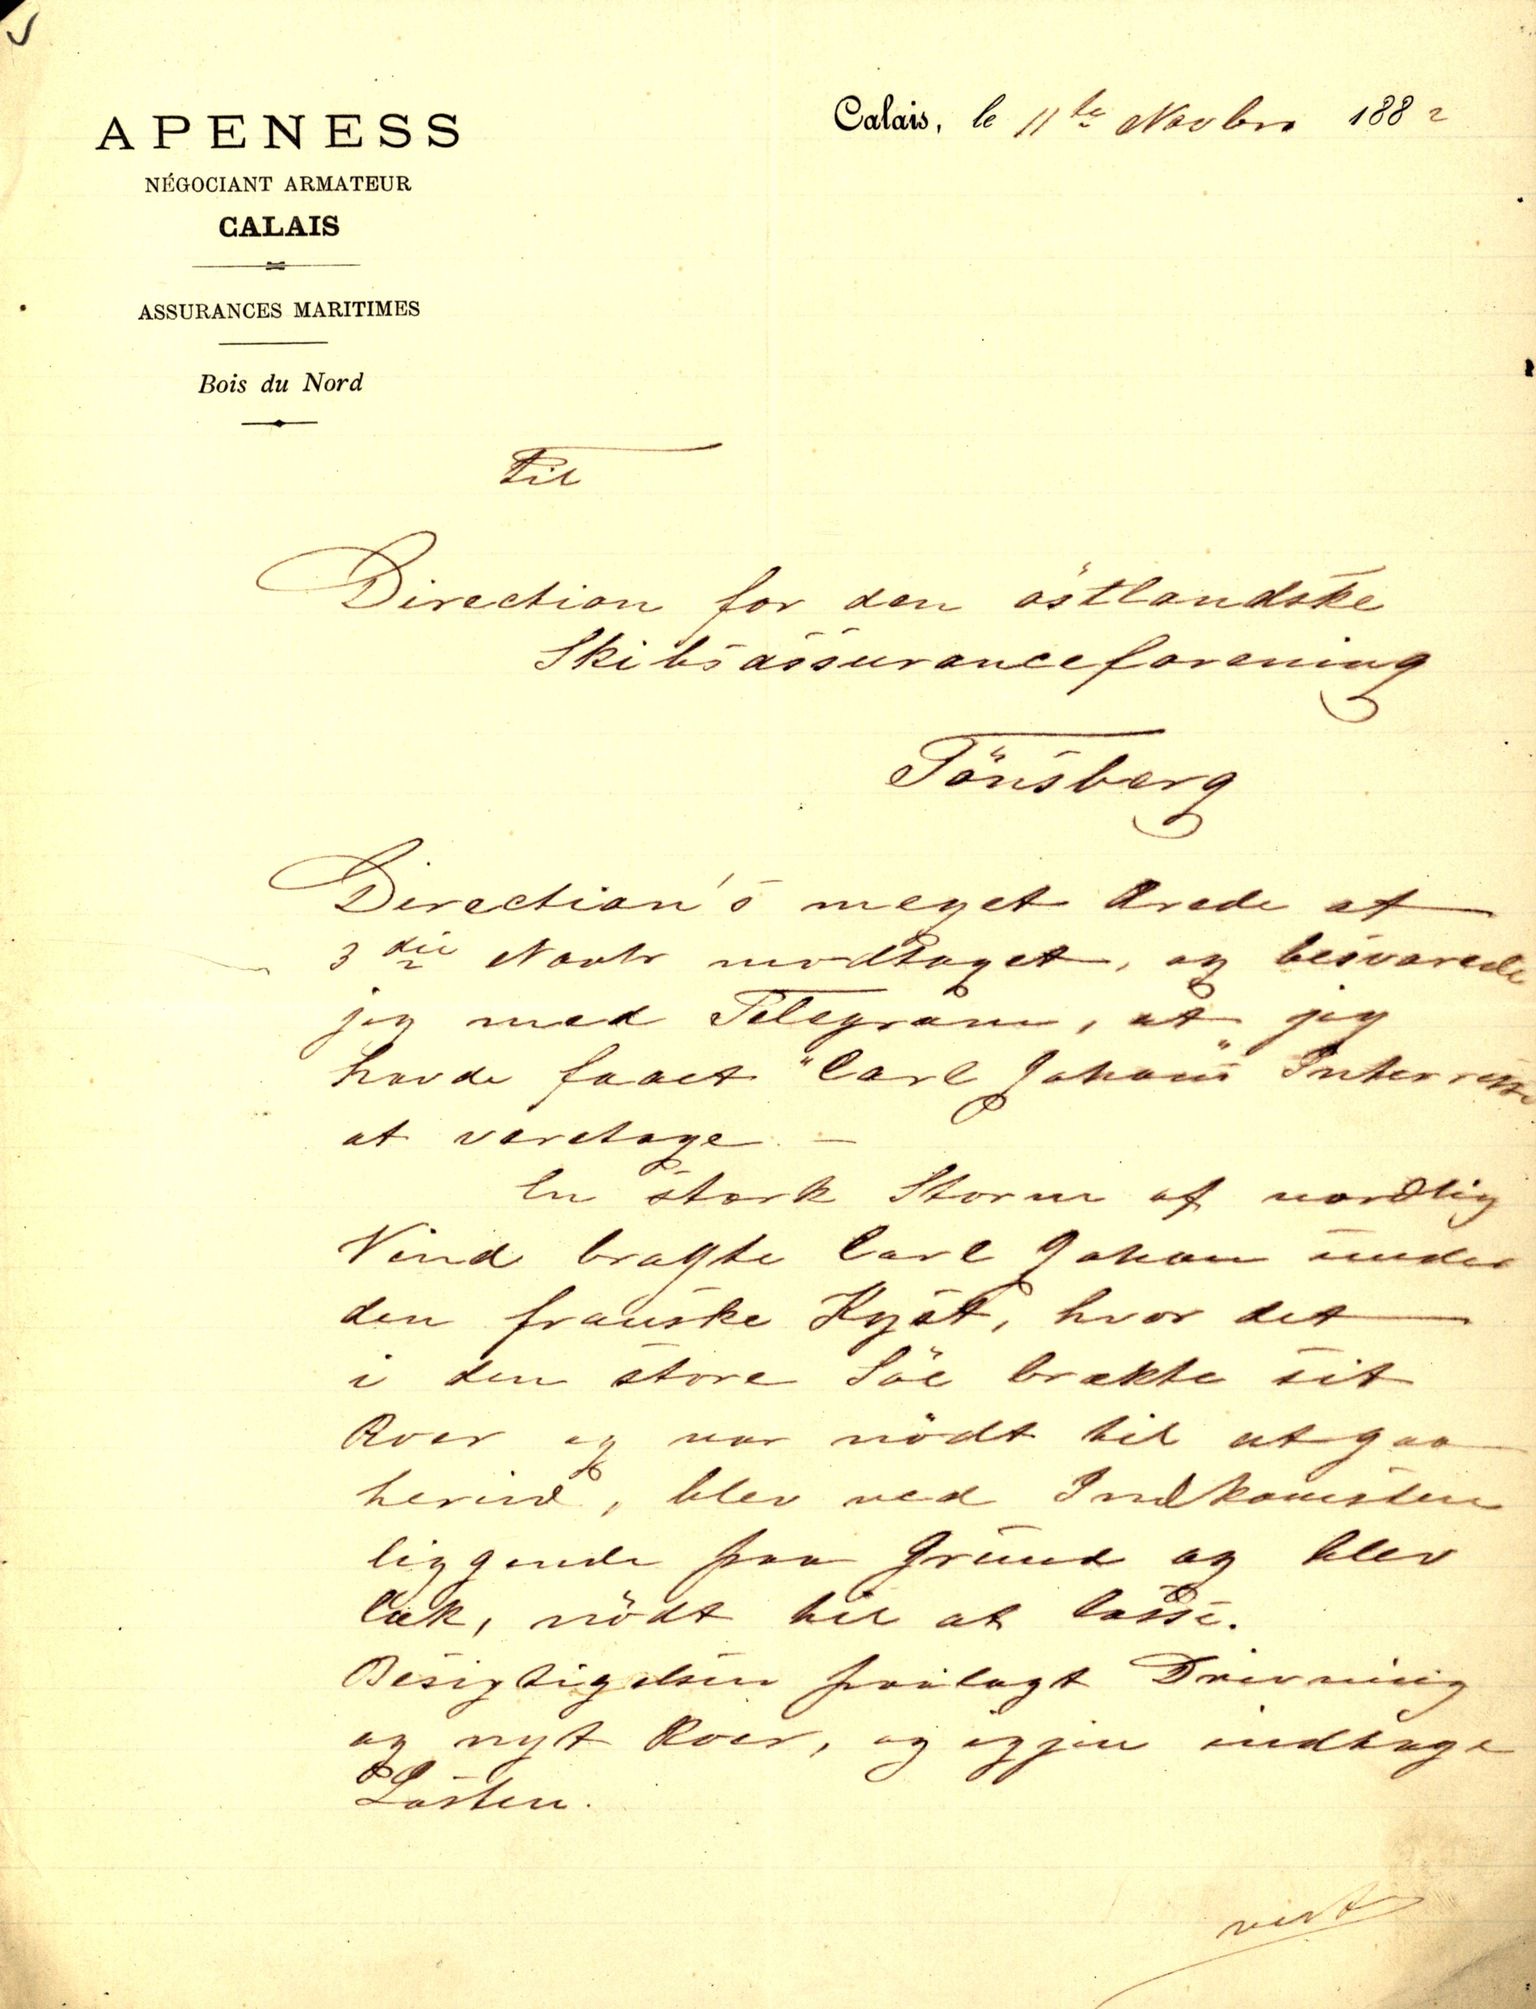 APENESS
NÉGOCIANT ARMATEUR
CALAIS
ASSURANCES MARITIMES
Bois du Nord
Calais, le 11te Novbre 1882
Til
Direction for den östlandske
Skibsassuranceforening
Tönsberg
Direction's meget Ærede af
3die Novbr modtaget, og besvarede
jeg med Telegram, at jeg
havde faaet "Carl Johan"s Interesse
at varetage. —
En stærk Storm af nordlig
Vind bragte Carl Johan under
den franske Kyst, hvor det
i den store Söe brækte sit
Roer og var nödt til at gaa
herind, blev ved Indkomsten
liggende paa Grund og blev
læk, nödt til at losse.
Besigtigelsen paalagt Drivning
og nyt Roer, og igjen indtage
Lasten.
vert